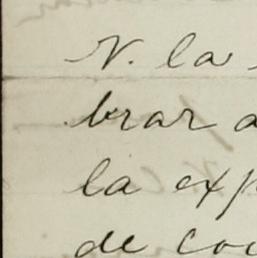 N. la
brar a
la exp
de co